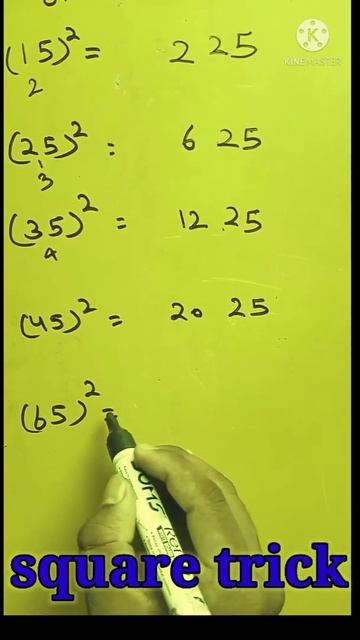 KINEMASTER
(15)² = 2 25
2
(25)² = 6 25
3
(35)² = 12 25
4
(45)² = 20 25
(65)² =
square trick